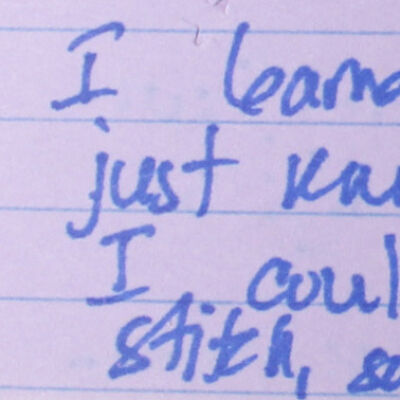 I learne
just kn
I coul
stitch, so